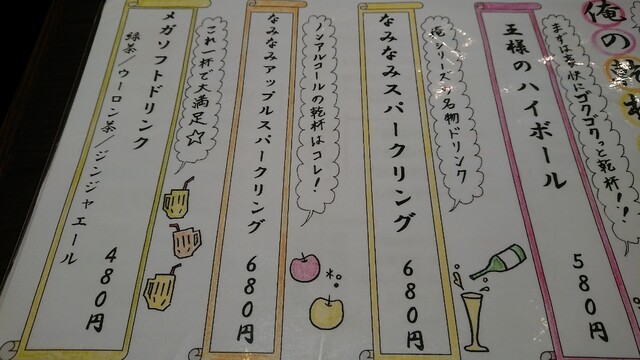 俺の
王様のハイボール
580円
まずは王様にゴクゴクっと乾杯!!
なみなみスパークリング
680円
俺シリーズの名物ドリンク
なみなみアップルスパークリング
680円
ノンアルコールの乾杯はコレ!
メガソフトドリンク
緑茶/ウーロン茶/ジンジャエール
480円
これ一杯で大満足☆